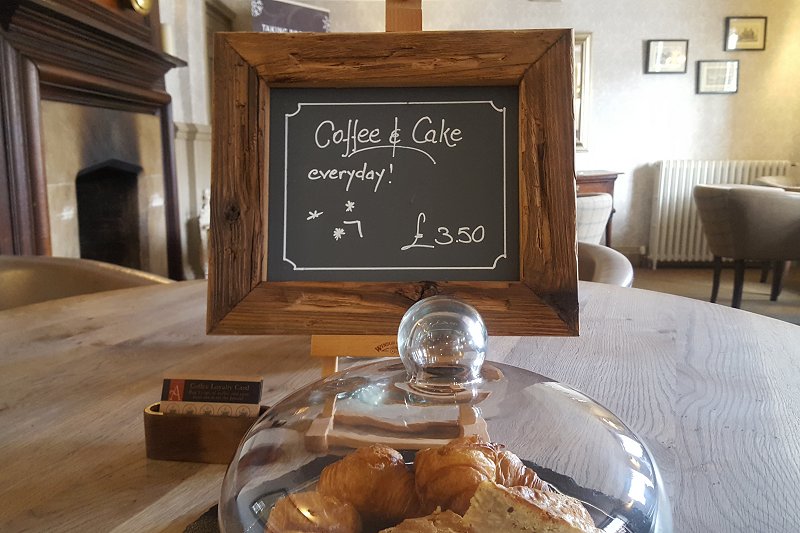 TAKING
Coffee & Cake
everyday!
£3.50
Coffee Loyalty Card